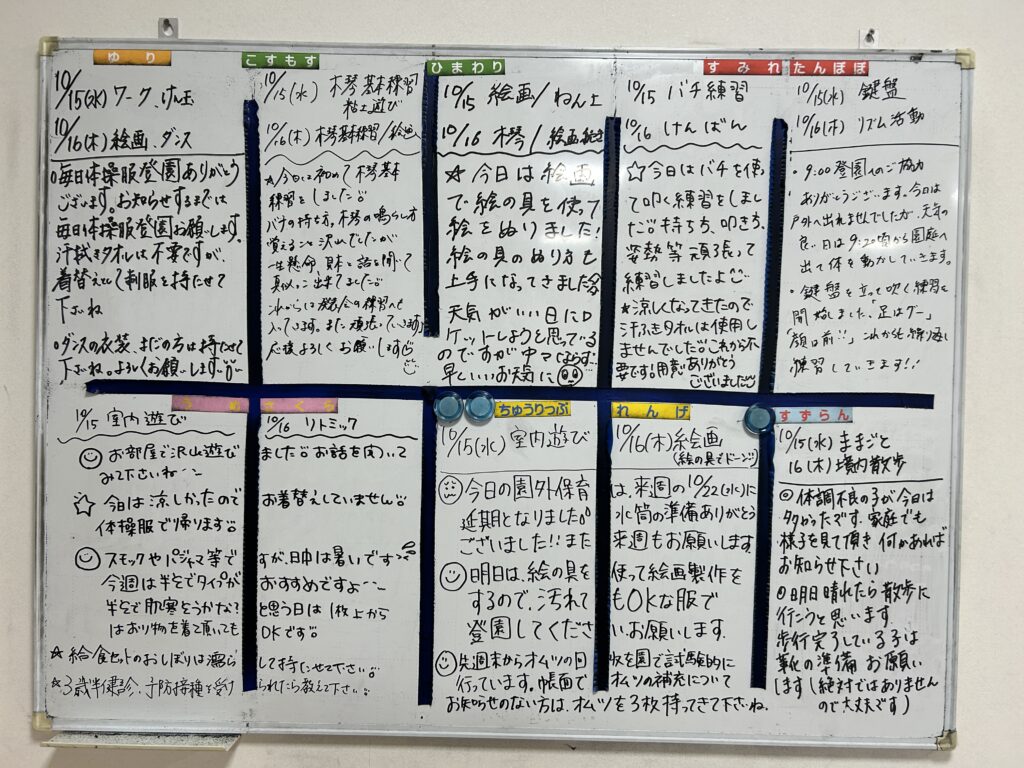 ゆり
10/15(水) ワーク、けん玉
10/16(木) 絵画、ダンス
○毎日体操服登園ありがとう
ございます。お知らせするまでは
毎日体操服登園お願いします。
汗拭きタオルは不要ですが、
着替えとして制服を持たせて
下さいね
○ダンスの衣装、まだの方は持たせて
下さいね。よろしくお願いします
こすもす
10/15(水) 木琴基本練習
粘土遊び
10/16(木) 木琴基本練習/絵画
★今日は初めて木琴基本
練習をしました
バチの持ち方、木琴の鳴らし方
覚えること沢山でしたが
一生懸命、話を聞いて
真似っこ出来ました
これからは発表会の練習へも
入っています。また頑張っています
応援よろしくお願いします
ひまわり
10/15 絵画/ねん土
10/16 木琴/絵画続き
☆今日は絵画
で絵の具を使って
絵をぬりました!
絵の具のぬり方も
上手になってきました
天気がいい日にロ
ケットしようと思っている
のですが中々ならず…
早くいいお天気に
すみれ
10/15 バチ練習
10/16 けんばん
☆今日はバチを使
って叩く練習をしまし
た。持ち方、叩き方、
姿勢等頑張って
練習しましたよ
★涼しくなってきたので
汗ふきタオルは使用し
ませんでした。これから不
要です!用意ありがとう
ございました
たんぽぽ
10/15(水) 鍵盤
10/16(木) リズム活動
・9:00登園へのご協力
ありがとうございます。今日は
戸外へ出れませんでしたが、天気の
良い日は9:20頃から園庭へ
出て体を動かしていきます。
・鍵盤を立って吹く練習を
開始しました。「足はグー」
「顔は前…」これからも繰り返し
練習していきます!!
うめ さくら
10/15 室内遊び 10/16 リトミック
お部屋で沢山遊び ました。お話を聞いて
みて下さいね
今日は涼しかったので お着替えしていません。
体操服で帰ります。
スモックやパジャマ等で すが、日中は暑いです
今週は半そでタイプが おすすめですよ
半そで肌寒そうかな? と思う日は1枚上から
はおり物を着て頂いても OKです。
★給食セットのおしぼりは濡ら して持たせて下さい。
★3歳半健診、予防接種を受け られたら教えて下さい。
ちゅうりっぷ れんげ
10/15(水) 室内遊び 10/16(木) 絵画
(絵の具でドーン)
今日の園外保育 は、来週の10/22(水)に
延期となりました。 水筒の準備ありがとう
ございました!!また 来週もお願いします
明日は、絵の具を 使って絵画製作を
するので、汚れて もOKな服で
登園してくださ い。お願いします.
先週末からオムツの回 収を園で試験的に
行っています。帳面で オムツの補充について
お知らせのない方は、オムツを3枚持ってきて下さいね.
すずらん
10/15(水) ままごと
16(木) 場内散歩
◎体調不良の子が今日は
多かったです. 家庭でも
様子を見て頂き 何かあれば
お知らせ下さい
◎明日晴れたら散歩に
行こうと思います.
歩行完了している子は
靴の準備 お願い
します(絶対ではありません
ので大丈夫です)